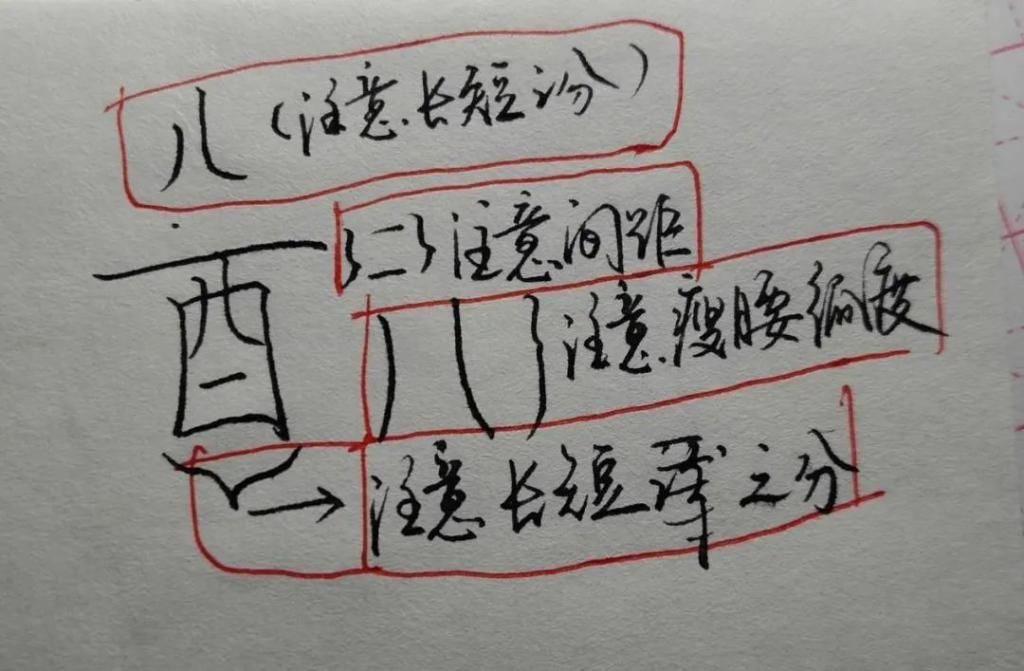 八（注意长短之分）
二 注意间距
酉 注意瘦腰幅度
注意长短 之分